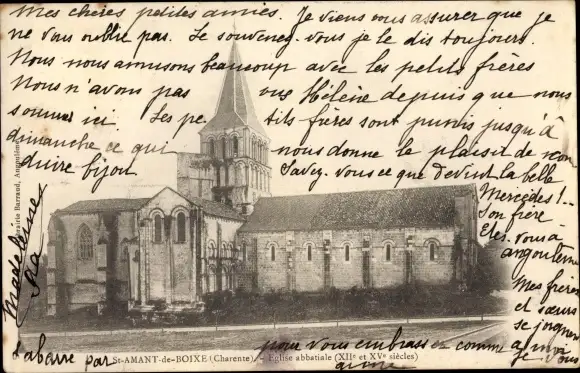 Mes chères petites amies. Je viens vous assurer que je
ne vous oublie pas. Le souvenez-vous je le dis toujours.
Nous nous amusons beaucoup avec les petits frères
Nous n'avons pas vu Hélène depuis que nous
sommes ici. Les petits frères sont punis jusqu'à
dimanche ce qui nous donne le plaisir de
duire bijou Savez-vous ce que devient la belle
Mercédès!..
Son frère
Etes-vous à
Angoulême
Mes frères
et sœurs
se joignent
à moi
pour vous embrasser comme je vous
aime
Madeleine
Labarre par
Librairie Barraud, Angoulême
St-AMANT-de-BOIXE (Charente). - Eglise abbatiale (XIIe et XVe siècles)